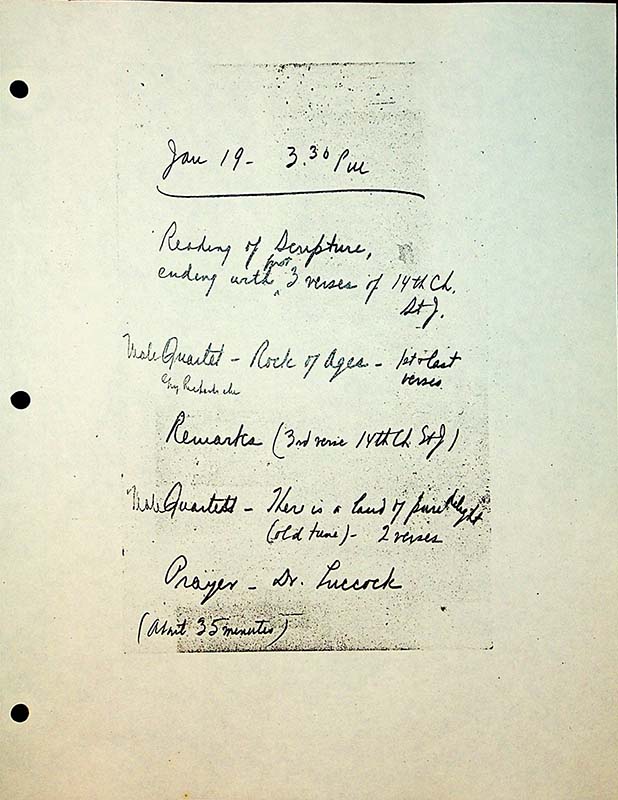 Jan 19 - 3.30 Pm
Reading of Scripture,
first
ending with 3 verses of 14th Ch.
St J.
Male Quartet - Rock of Ages - 1st & last
verses
Remarks (3rd verse 14th Ch St J)
Male Quartett - There is a land of pure delight
(old tune) - 2 verses
Prayer - Dr. Luccock
(About 35 minutes)